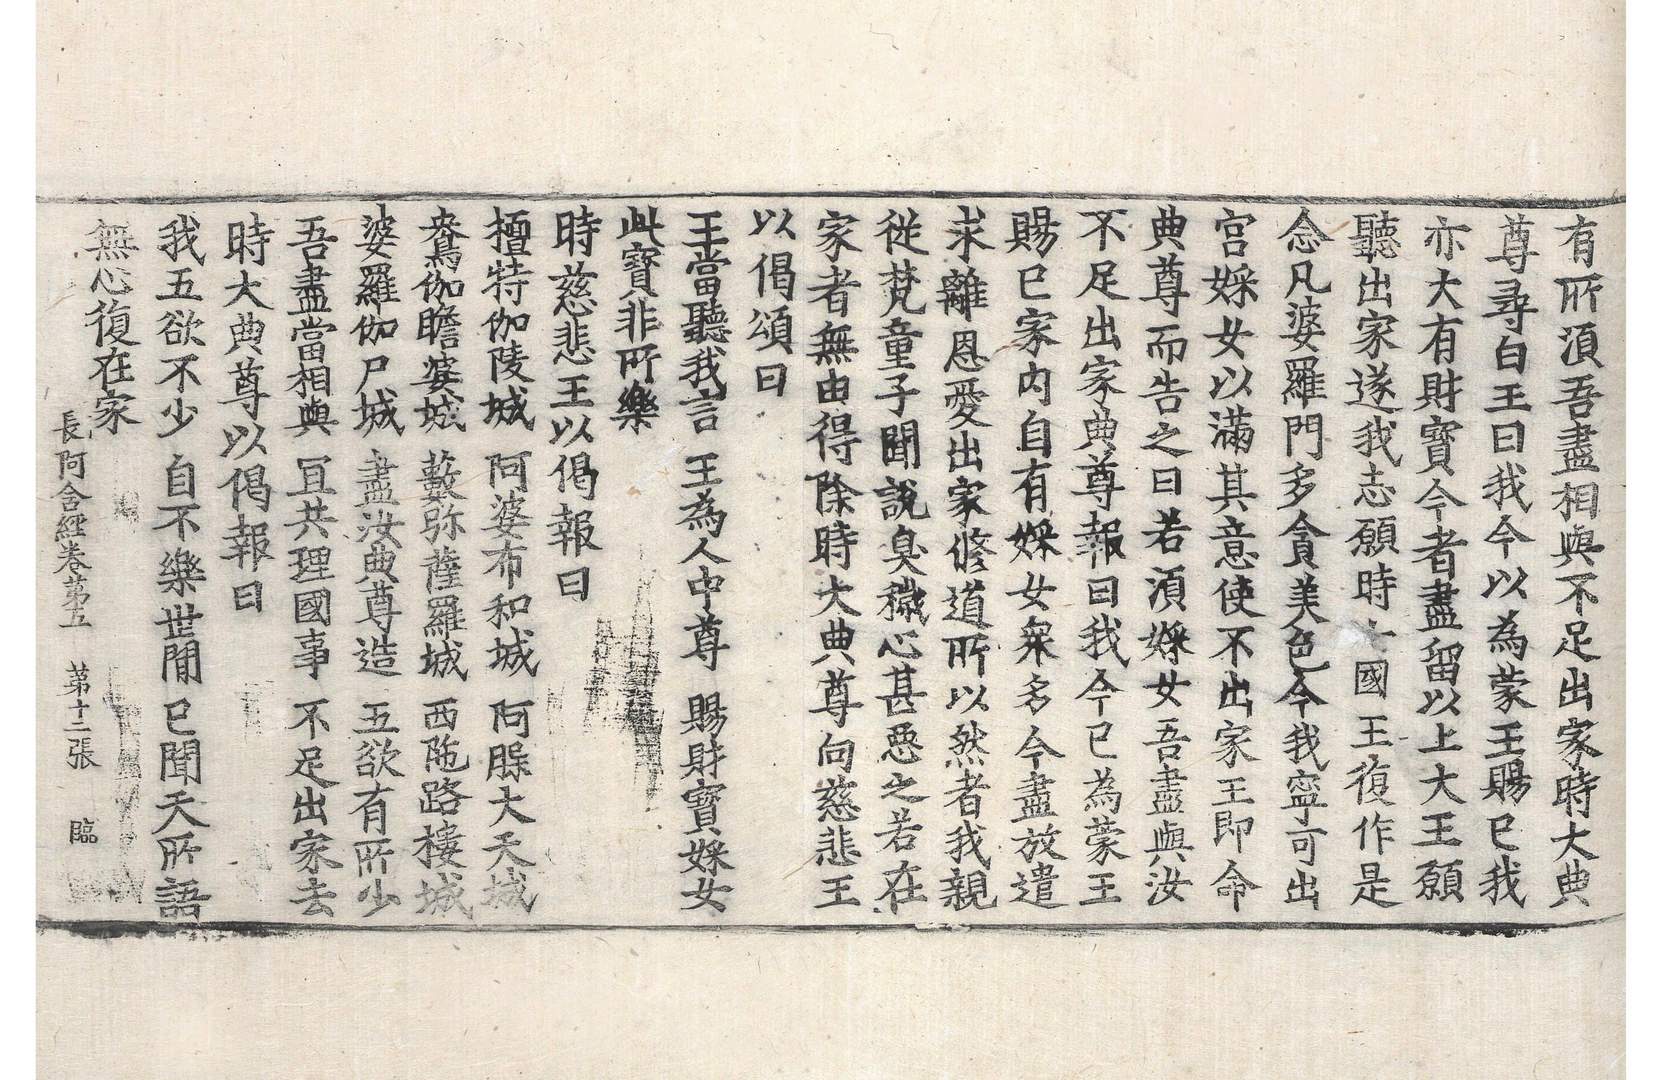 有所湏吾盡相與不足出家時大典
尊尋白王曰我今以為蒙王賜已我
亦大有財寶今者盡留以上大王願
聽出家遂我志願時七國王復作是
念凡婆羅門多貪美色今我寧可出
宮婇女以滿其意使不出家王即命
典尊而告之曰若湏婇女吾盡與汝
不足出家典尊報曰我今已為蒙王
賜已家內自有婇女衆多今盡放遣
求離恩愛出家修道所以然者我親
從梵童子聞說臭穢心甚惡之若在
家者無由得除時大典尊向慈悲王
以偈頌曰
王當聽我言 王為人中尊 賜財寶婇女
此寶非所樂
時慈悲王以偈報曰
檀特伽陵城 阿婆布和城 阿䐗大天城
鴦伽瞻婆城 藪弥薩羅城 西陁路樓城
婆羅伽尸城 盡汝典尊造 五欲有所少
吾盡當相與 冝共理國事 不足出家去
時大典尊以偈報曰
我五欲不少 自不樂世間 已聞天所語
無心復在家
長阿含經卷第五 第十二張 臨